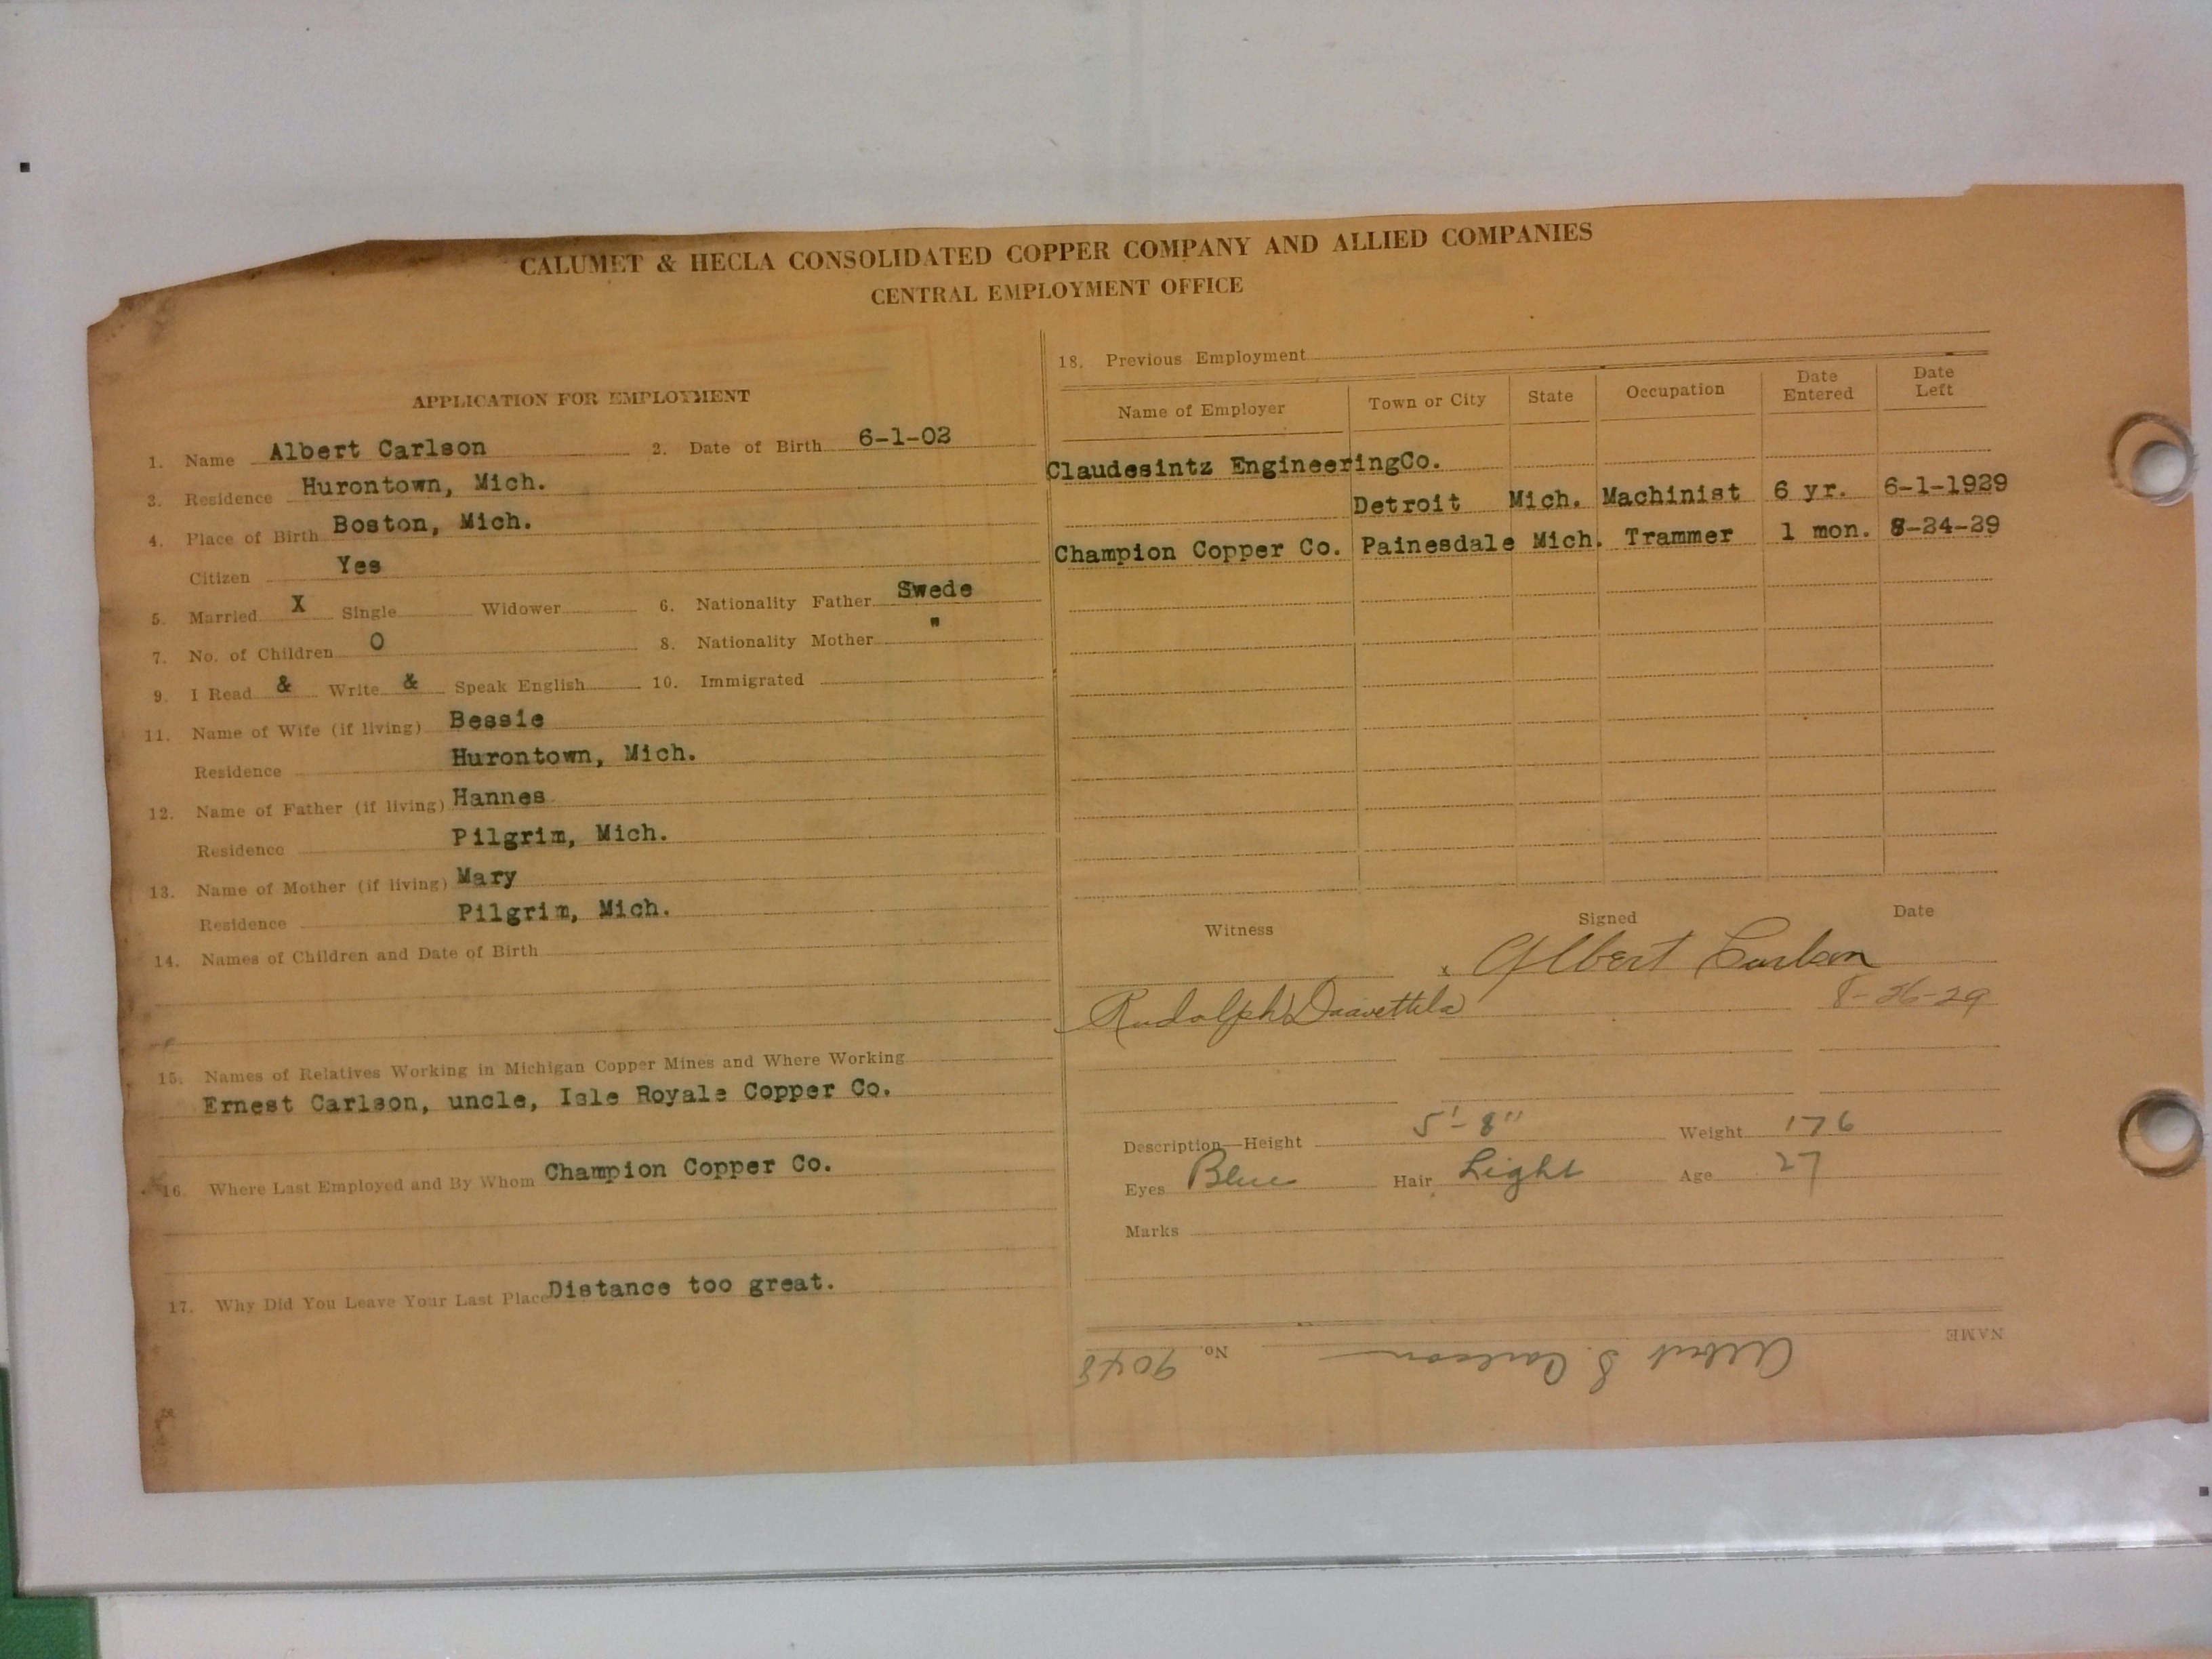 CALUMET & HECLA CONSOLIDATED COPPER COMPANY AND ALLIED COMPANIES
CENTRAL EMPLOYMENT OFFICE
APPLICATION FOR EMPLOYMENT
1. Name Albert Carlson 2. Date of Birth 6-1-02
3. Residence Hurontown, Mich.
4. Place of Birth Boston, Mich.
Citizen Yes
5. Married X Single Widower 6. Nationality Father Swede
7. No. of Children O 8. Nationality Mother "
9. I Read & Write & Speak English 10. Immigrated
11. Name of Wife (if living) Bessie
Residence Hurontown, Mich.
12. Name of Father (if living) Hannes
Residence Pilgrim, Mich.
13. Name of Mother (if living) Mary
Residence Pilgrim, Mich.
14. Names of Children and Date of Birth
15. Names of Relatives Working in Michigan Copper Mines and Where Working
Ernest Carlson, uncle, Isle Royale Copper Co.
16. Where Last Employed and By Whom Champion Copper Co.
17. Why Did You Leave Your Last Place Distance too great.
18. Previous Employment
Name of Employer Town or City State Occupation Date Entered Date Left
Claudesintz EngineeringCo.
Detroit Mich. Machinist 6 yr. 6-1-1929
Champion Copper Co. Painesdale Mich. Trammer 1 mon. 8-24-29
Witness Signed Date
x Albert Carlson
Rudolph Daavettila 8-26-29
Description—Height 5'-8" Weight 176
Eyes Blue Hair Light Age 27
Marks
NAME Albert S. Carlson No. 9048